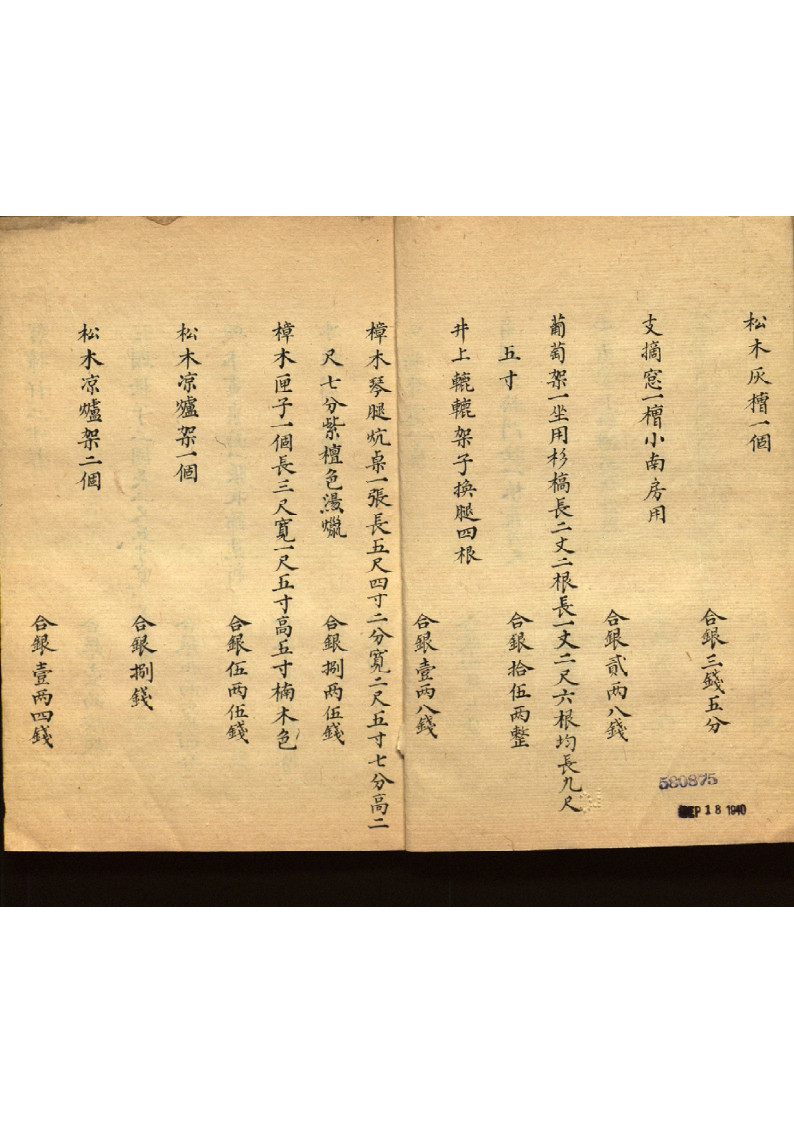 松木灰槽一個
合銀三錢五分
支摘窓一槽小南房用
合銀貳两八錢
葡萄架一坐用杉槁長二丈二根長一丈二尺六根均長九尺
五寸
合銀拾伍两整
井上轆轆架子換腿四根
合銀壹两八錢
樟木琴腿炕桌一張長五尺四寸二分寬二尺五寸七分高二
尺七分紫檀色燙爉
合銀捌两伍錢
樟木匣子一個長三尺寬一尺五寸高五寸楠木色
合銀伍两伍錢
松木凉爐架一個
合銀捌錢
松木凉爐架二個
合銀壹两四錢
580875
SEP 18 1940